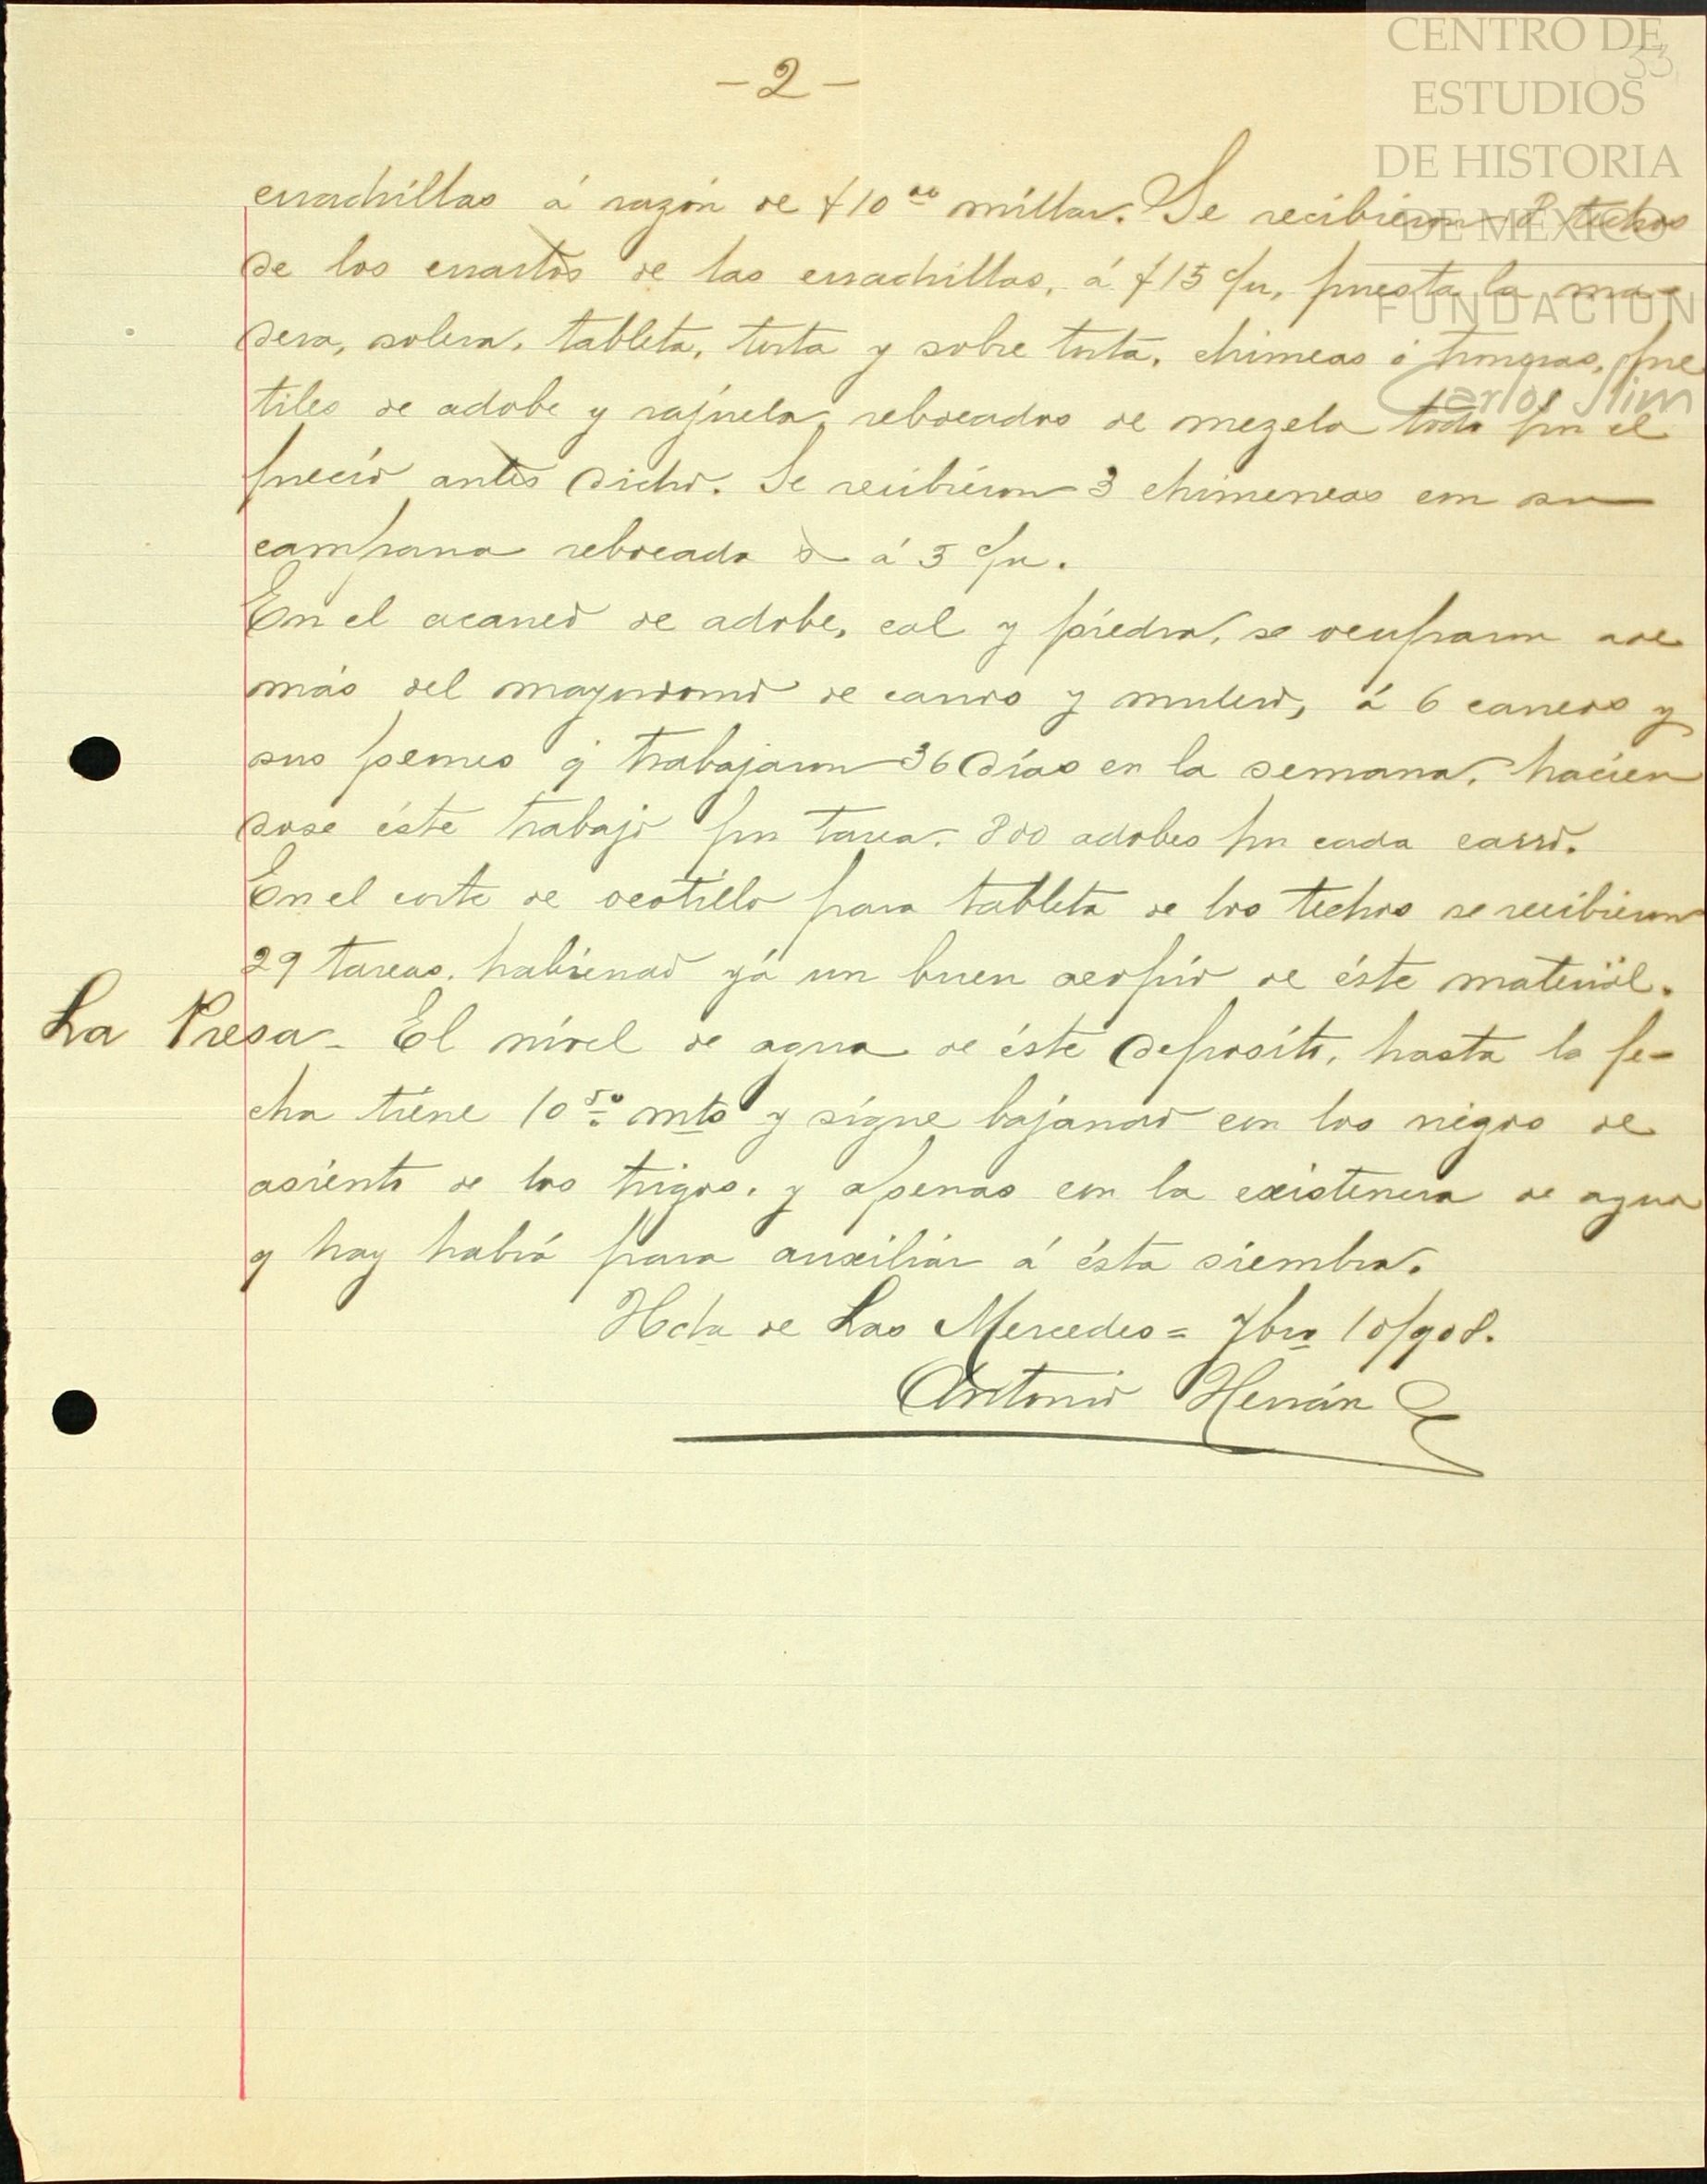 CENTRO DE
ESTUDIOS
DE HISTORIA
DE MÉXICO
FUNDACIÓN
Carlos Slim
33
- 2 -
cuadrillas á razón de $10.00 millar. Se recibieron 8 techos
de los cuartos de las cuadrillas, á $15 c/u, puesta la ma-
dera, solera, tableta, torta y sobre torta, chimeas ó troneras, pre
tiles de adobe y rajuela, rebocados de mezcla todo por el
precio antes dicho. Se recibieron 3 chimeneas con su
campana rebocada á 3 c/u.
En el acarreo de adobe, cal y piedra, se ocuparon ade
más del mayordomo de carros y mulero, á 6 carreros y
sus peones q trabajaron 36 días en la semana, hacien
dose éste trabajo por tarea. 800 adobes por cada carro.
En el corte de ocotillo para tableta de los techos se recibieron
29 tareas, habiendo yá un buen acopio de éste material.
La Presa - El nivel de agua de éste deposito, hasta la fe-
cha tiene 10.50 mts y sigue bajando con los riegos de
asiento de los trigos, y apenas con la existencia de agua
q hay habrá para auxiliar á ésta siembra.
Hcda de Las Mercedes = 7bro 10/908.
Antonio Herrán